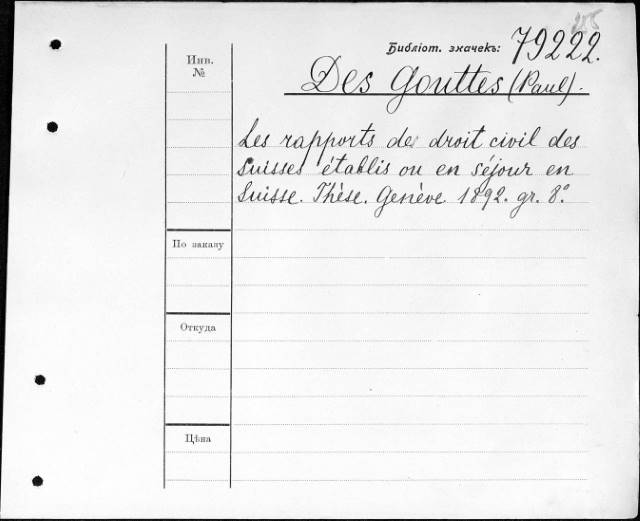 Библіот. значекъ: 79222.
Инв.
№
Des Gouttes (Paul).
Les rapports de droit civil des
Suisses établis ou en séjour en
Suisse. Thèse. Genève 1892. gr. 8°.
По заказу
Откуда
Цѣна